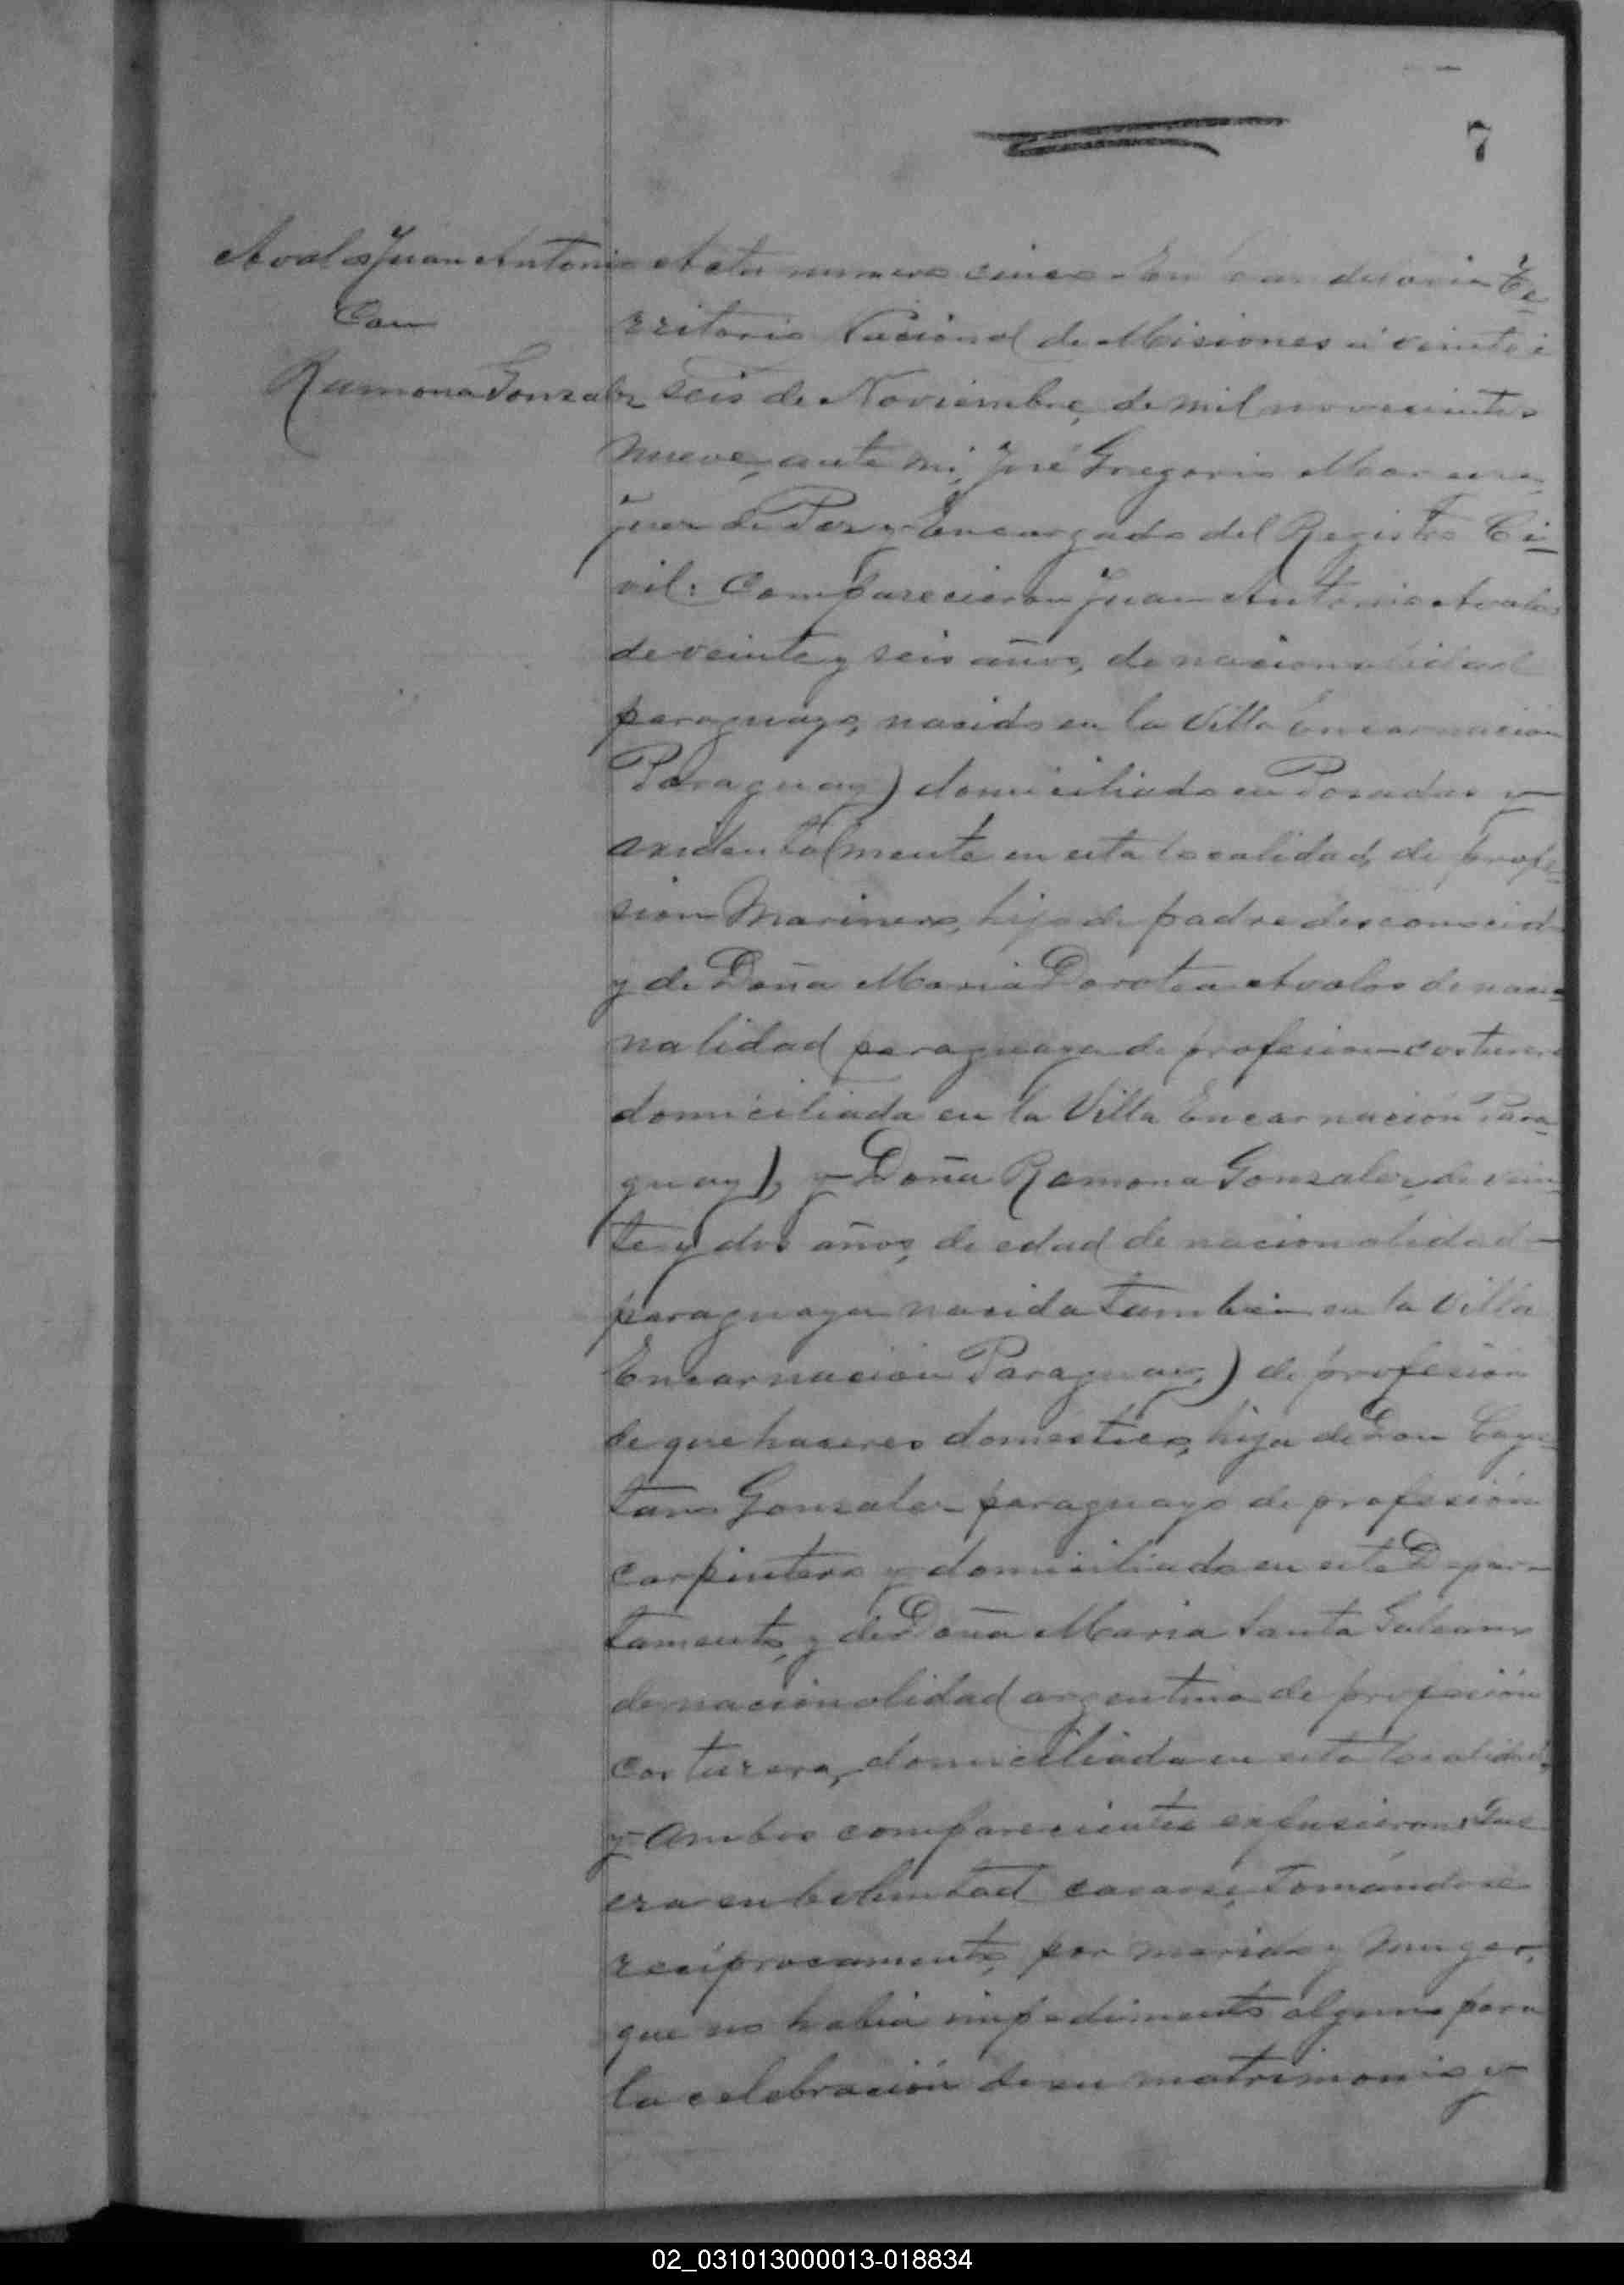 7
Avalos Juan Antonio
Con
Ramona Gonzalez
Acta numero cinco. En Candelaria Te-
rritorio Nacional de Misiones á veinte i
seis de Noviembre, de mil novecientos
nueve, ante mi, José Gregorio
Juez de Paz y Encargado del Registro Ci-
vil: Comparecieron Juan Antonio Avalos
de veinte y seis años, de nacionalidad
paraguayo, nacido en la Villa Encarnación
Paraguay) domiciliado en Posadas y
axidentalmente en esta localidad, de profe-
sion Marinero, hijo de padre desconocido
y de Doña Maria Dorotea Avalos de nacio-
nalidad paraguaya de profesion costurera
domiciliada en la Villa Encarnación Para-
guay), y Doña Ramona Gonzalez, de vein-
te y dos años, de edad de nacionalidad
paraguaya nacida tambien en la Villa
Encarnación Paraguay,) de profesión
de que haceres domestico, hija de Don Caye-
tano Gonzalez paraguayo de profesión
carpintero y domiciliado en este Depar-
tamento, y de Doña Maria Santa Galeano
de nacionalidad argentina de profesión
costurera, domiciliada en esta localidad,
y ambos comparecientes expusieron: Que
era su boluntad casarse, tomándose
recíprocamente, por marido y muger,
que no habia impedimento alguno para
la celebración de su matrimonio y
02_031013000013-018834